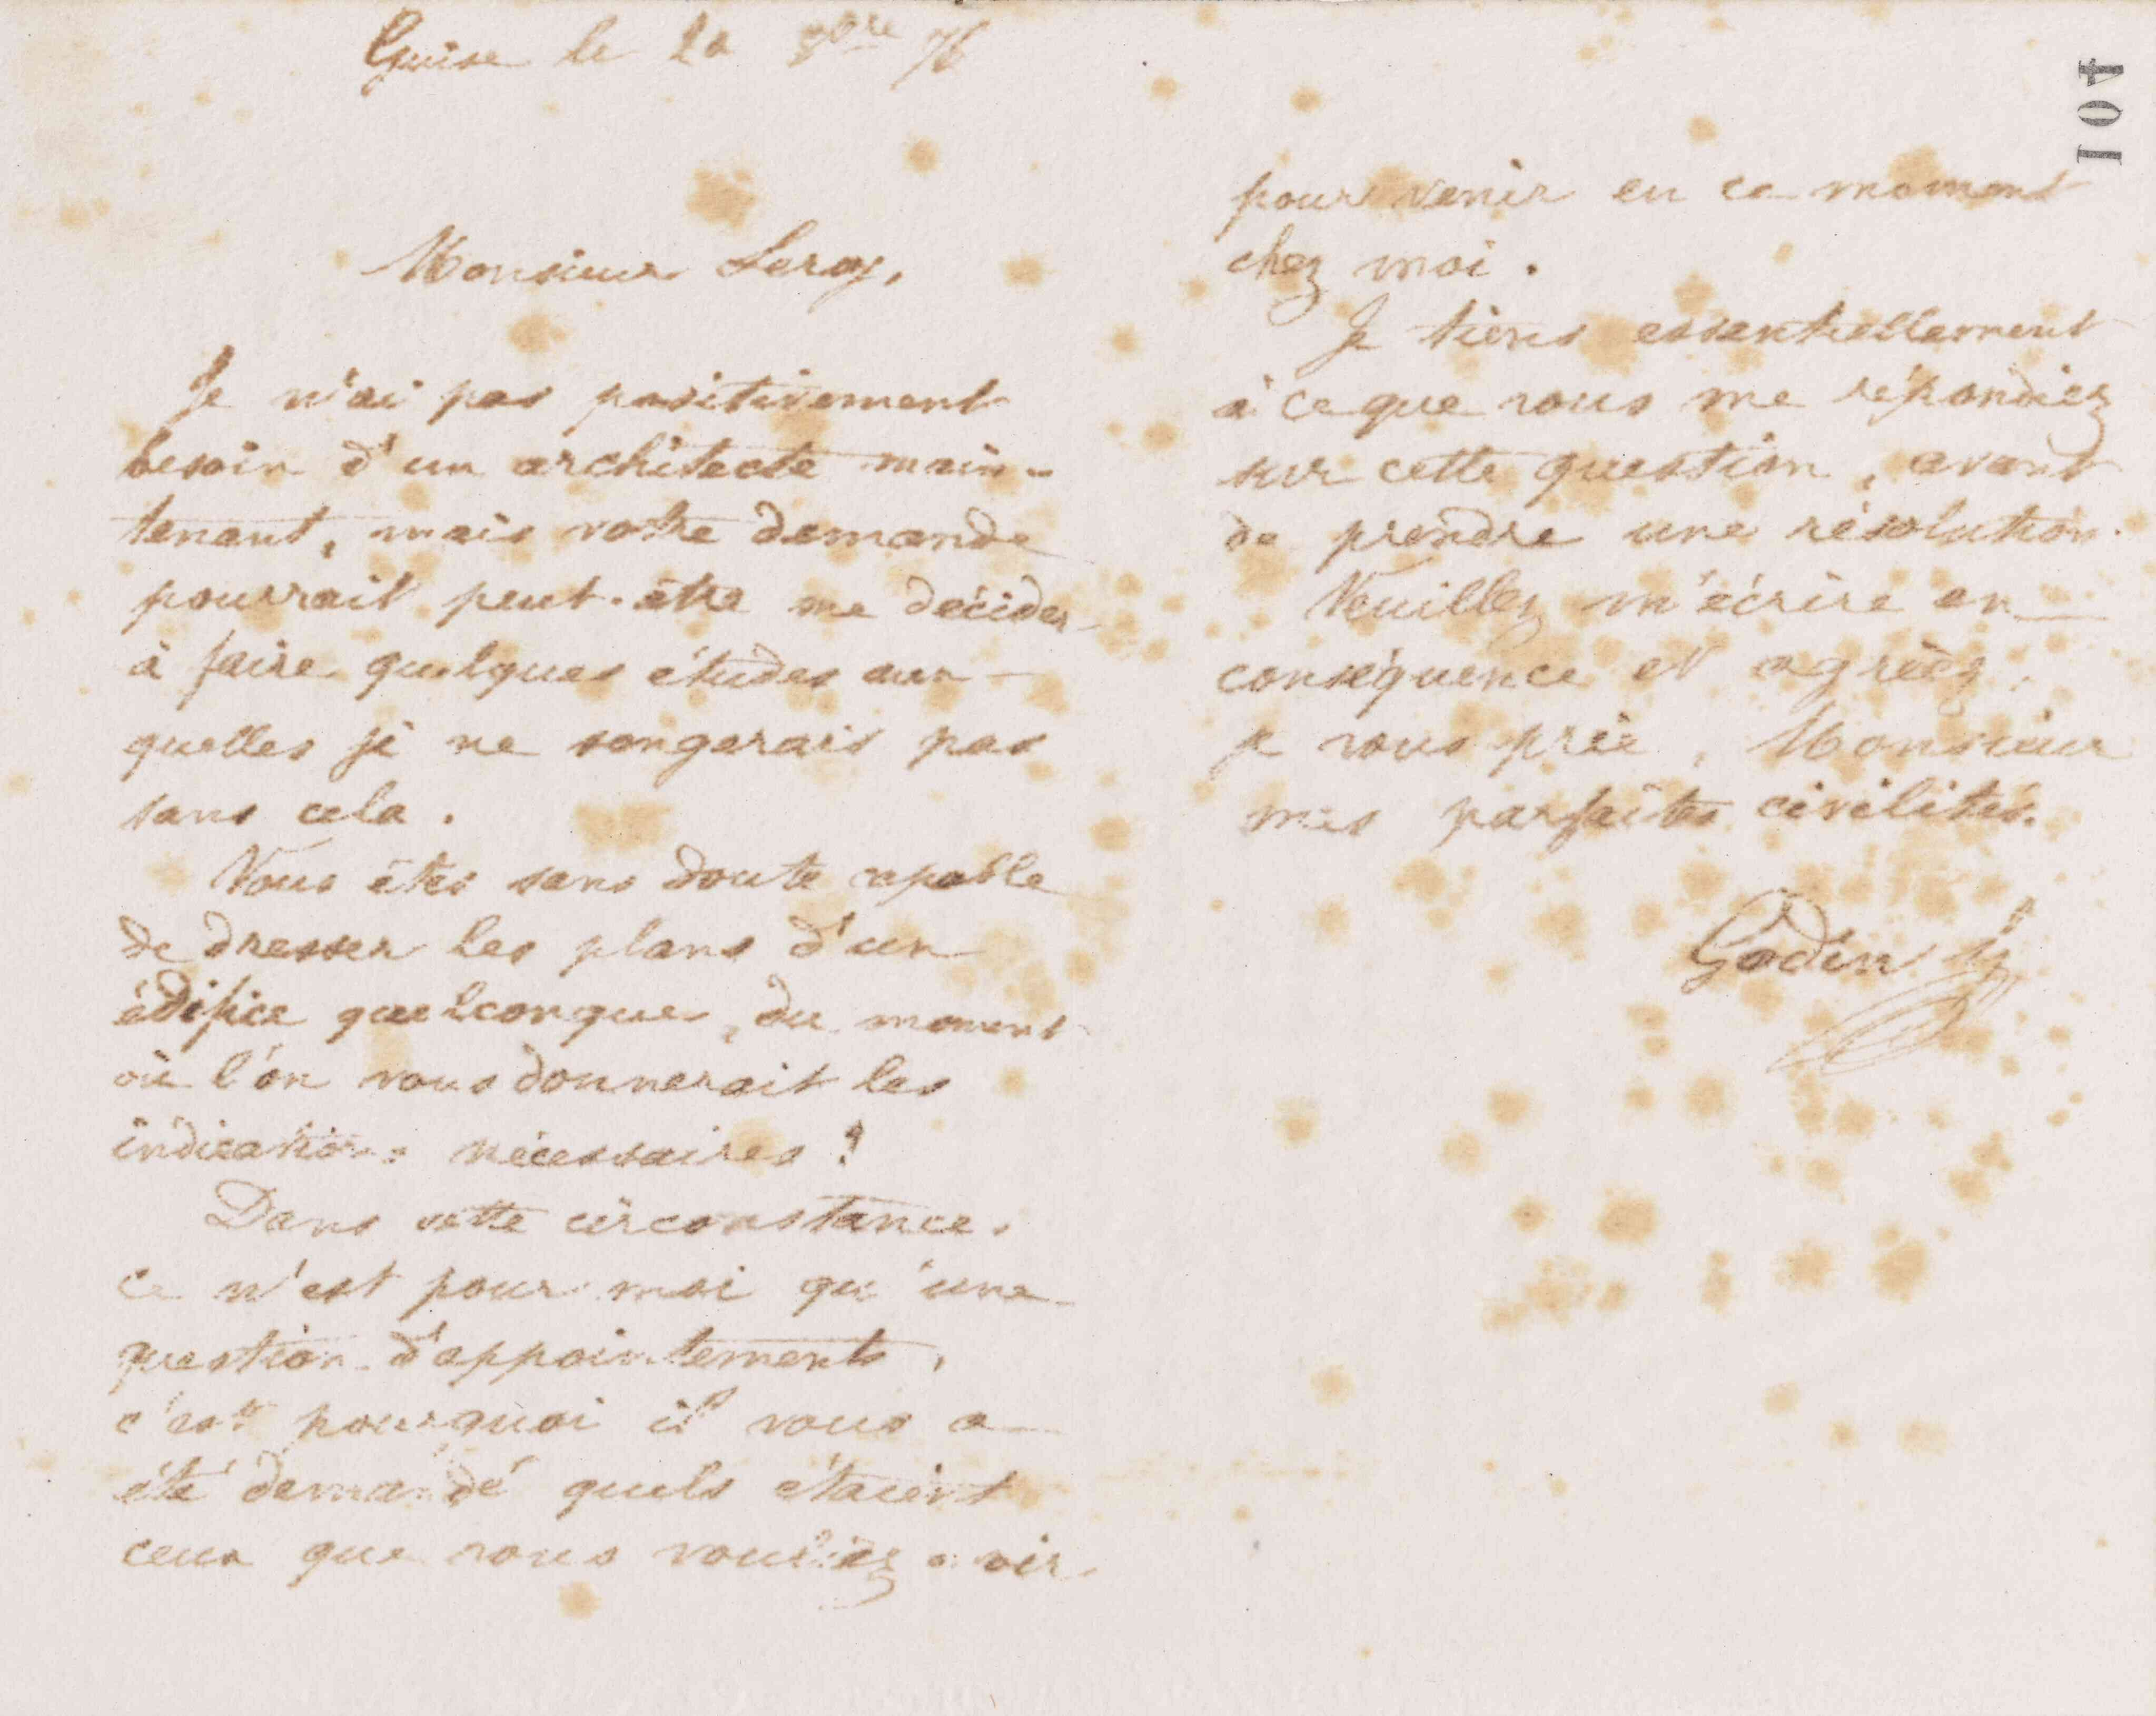 Guise le 20 9bre 76
Monsieur Leroy,
Je n'ai pas positivement
besoin d'un architecte main-
tenant, mais votre demande
pourrait peut-être me décider
à faire quelques études aux
quelles je ne songerais pas
sans cela.
Vous êtes sans doute capable
de dresser les plans d'un
édifice quelconque, du moment
où l'on vous donnerait les
indications nécessaires?
Dans cette circonstance,
ce n'est pour moi qu'une
question d'appointements,
c'est pourquoi il vous a
été demandé quels étaient
ceux que vous vouliez avoir
104
pour venir en ce moment
chez moi.
Je tiens essentiellement
à ce que vous me répondiez
sur cette question, avant
de prendre une résolution.
Veuillez m'écrire en
conséquence et agréez,
je vous prie, Monsieur
mes parfaites civilités.
Godin